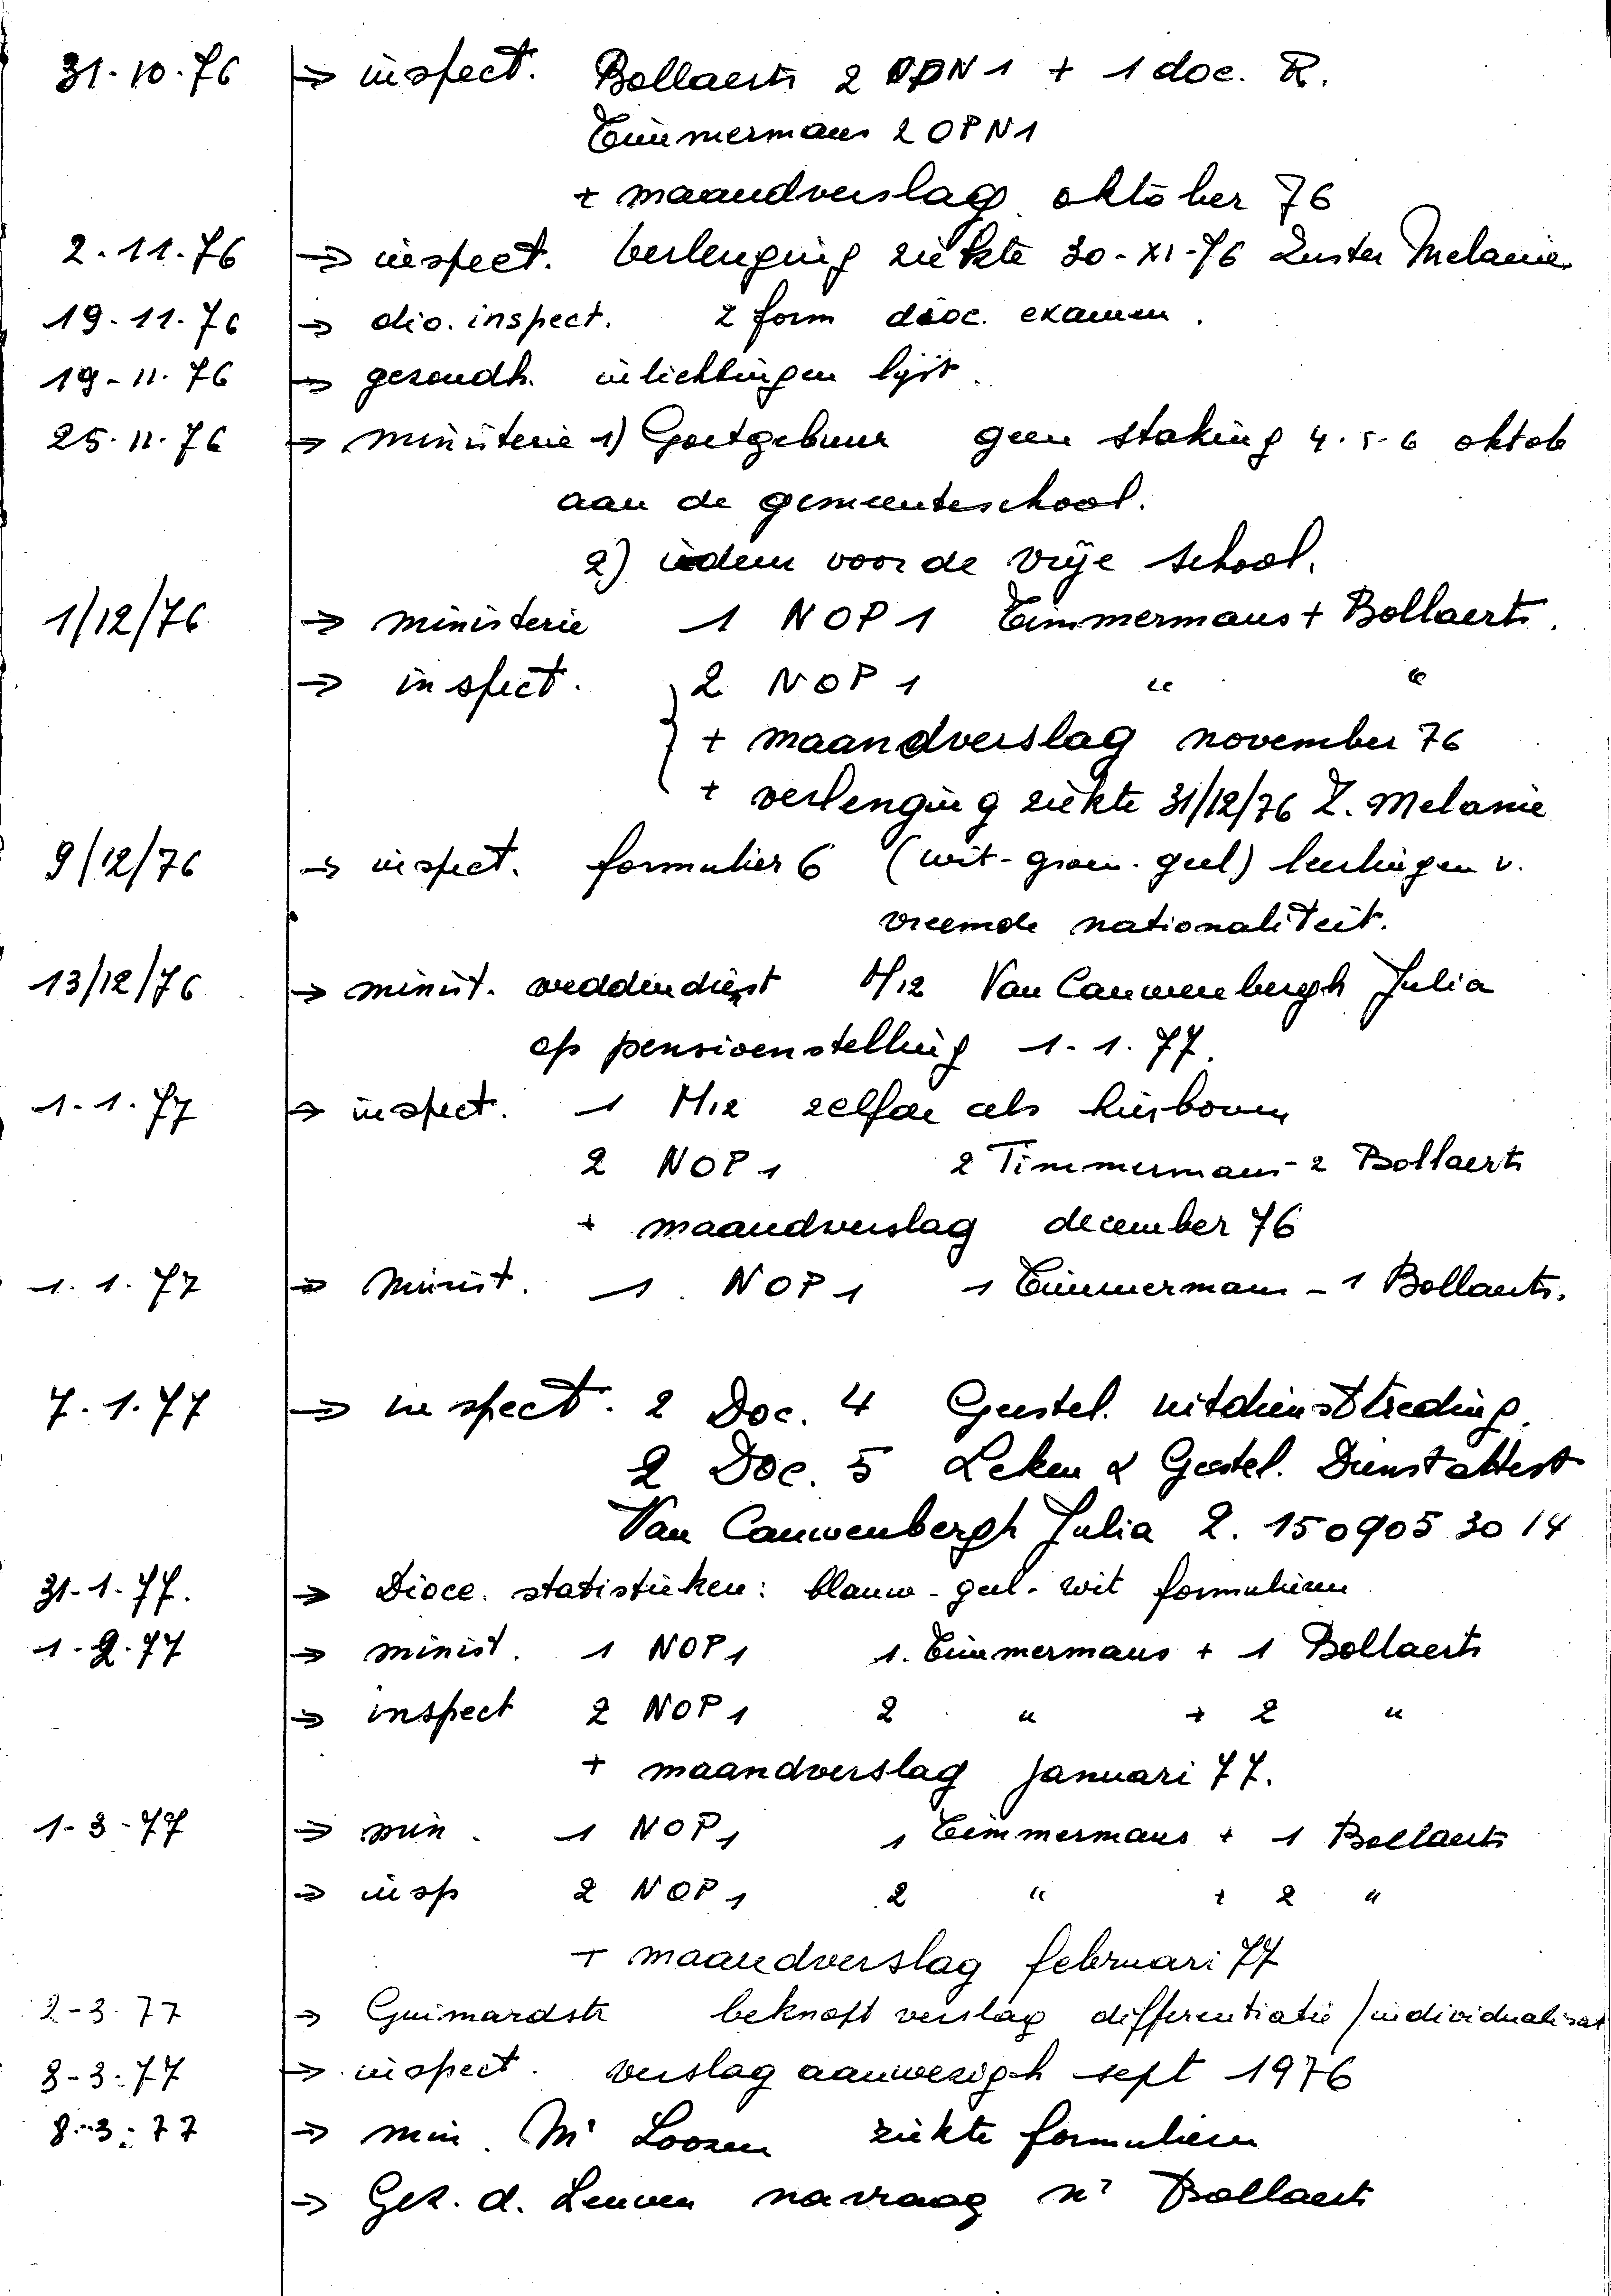 31.10.76 → inspect. Bollaerts 2 OPN 1 + 1 doc. R.
Timmermans 2 OPN1
+ maandverslag oktober 76
2.11.76 → inspect. verlenging ziekte 30-XI-76 Zuster Melanie.
19.11.76 → dio. inspect. 2 form dioc. examen.
19-11.76 → gezondh. inlichtingen lijst.
25.11.76 → ministerie 1) Goetgebuur geen staking 4.5.6 oktob
aan de gemeenteschool.
2) idem voor de vrije school.
1/12/76 → ministerie 1 NOP 1 Timmermans + Bollaerts.
→ inspect. 2 NOP 1 " "
+ maandverslag november 76
+ verlenging ziekte 31/12/76 Z. Melanie
9/12/76 → inspect. formulier 6 (wit-groen-geel) leerlingen v.
vreemde nationaliteit.
13/12/76 → minist. weddendienst H12 Van Cauwenbergh Julia
op pensioenstelling 1.1.77.
1.1.77 → inspect. 1 H12 zelfde als hierboven
2 NOP 1 2 Timmermans - 2 Bollaerts
+ maandverslag december 76
1.1.77 → minist. 1 NOP 1 1 Timmermans - 1 Bollaerts.
7.1.77 → inspect. 2 Doc. 4 Geestel. uitdiensttreding.
2 Doc. 5 Leken & Geestel. Dienstattest
Van Cauwenbergh Julia 2. 150905 30 14
31.1.77. → Dioce. statistieken: blauw-geel-wit formulieren
1.2.77 → minist. 1 NOP1 1. Timmermans + 1 Bollaerts
→ inspect 2 NOP 1 2 " + 2 "
+ maandverslag januari 77.
1-3-77 → min. 1 NOP1 1 Timmermans + 1 Bollaerts
→ insp 2 NOP 1 2 " + 2 "
+ maandverslag februari 77
2-3.77 → Guimardstr beknopt verslag differentiatie/individualisat
8-3.77 → inspect. verslag aanwezigh sept 1976
8.3.77 → min. Mr Loozen ziekte formulieren
→ Gez. d. Leuven navraag nr Bollaerts